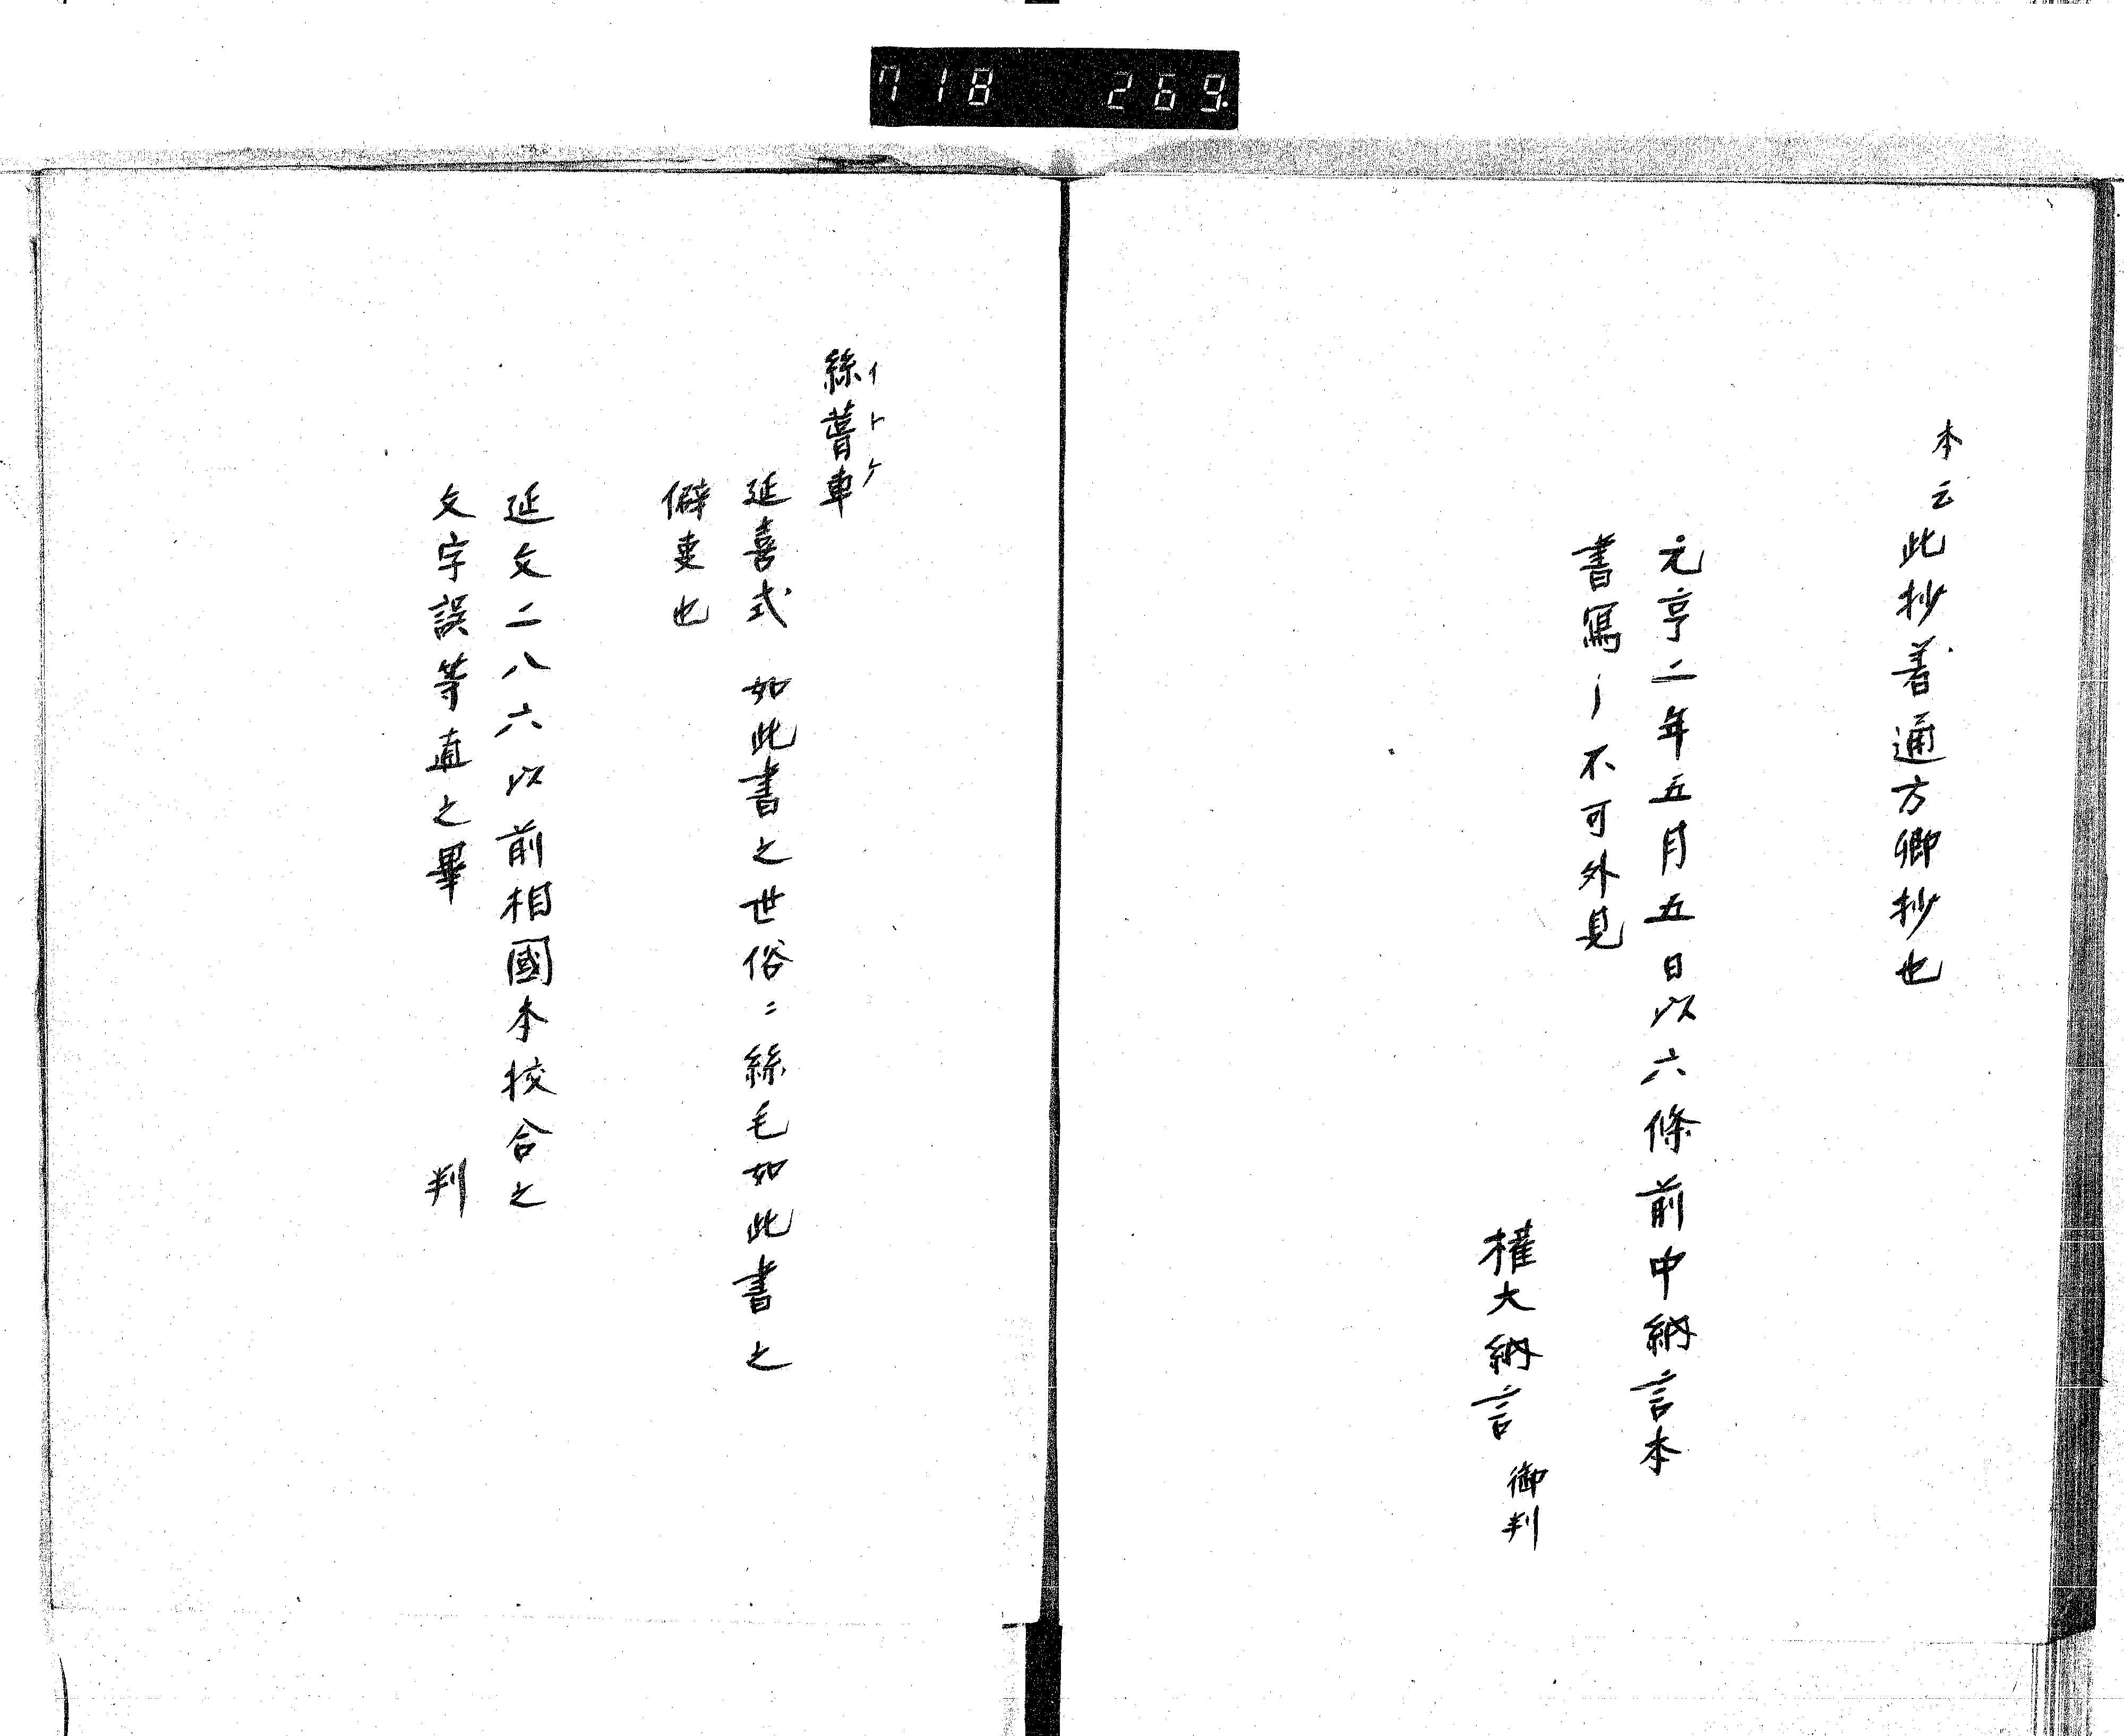 718 269.
本云此抄者通方卿抄也
元亨二年五月五日以六條前中納言本
書寫〡不可外見
權大納言 御判
絲葺車
イトケ
延喜式 如此書之世俗ニ絲毛如此書之
僻事也
延文二八六以前相國本校合之
文字誤等直之畢 判